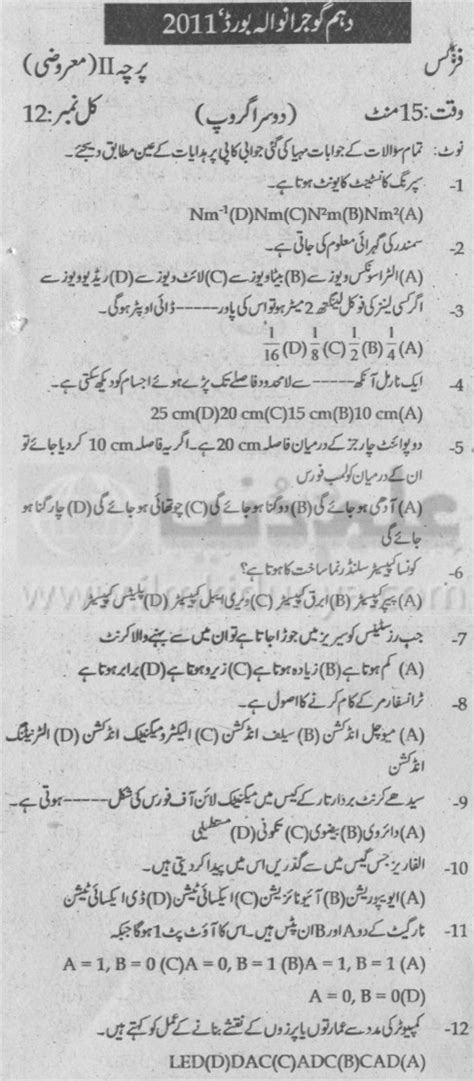 دہم گوجرانوالہ بورڈ، 2011
فزکس پرچہ II (معروضی)
وقت: 15 منٹ (دوسرا گروپ) کل نمبر: 12
نوٹ: تمام سوالات کے جوابات مہیا کی گئی جوابی کاپی پر ہدایات کے عین مطابق دیجئے۔
1- سپرنگ کانسٹینٹ کا یونٹ ہوتا ہے۔
Nm⁻¹(D)Nm(C)N²m(B)Nm²(A)
2- سمندر کی گہرائی معلوم کی جاتی ہے۔
(A) الٹراسونکس ویوز سے (B) بیٹا ویوز سے (C) لائٹ ویوز سے (D) ریڈیو ویوز سے
3- اگر کسی لینز کی فوکل لینگتھ 2 میٹر ہو تو اس کی پاور ----- ڈائی اوپٹر ہوگی۔
1/16 (D) 1/8 (C) 1/2 (B) 1/4 (A)
4- ایک نارمل آنکھ ----- سے لامحدود فاصلے تک پڑے ہوئے اجسام کو دیکھ سکتی ہے۔
25 cm(D)20 cm(C)15 cm(B)10 cm(A)
5- دو پوائنٹ چارجز کے درمیان فاصلہ 20 cm ہے۔ اگر یہ فاصلہ 10 cm کر دیا جائے تو
ان کے درمیان کولمب فورس
(A) آدھی ہو جائے گی (B) دوگنا ہو جائے گی (C) چوتھائی ہو جائے گی (D) چار گنا ہو
جائے گی
6- کونسا کپیسٹر سلنڈر نما ساخت کا ہوتا ہے؟
(A) پیپر کپیسٹر (B) ابرق کپیسٹر (C) ویری ایبل کپیسٹر (D) پلیٹس کپیسٹر
7- جب رزسٹینس کو سیریز میں جوڑا جاتا ہے تو ان میں سے بہنے والا کرنٹ
(A) کم ہوتا ہے (B) زیادہ ہوتا ہے (C) زیرو ہوتا ہے (D) برابر ہوتا ہے
8- ٹرانسفارمر کے کام کرنے کا اصول ہے۔
(A) میوچل انڈکشن (B) سیلف انڈکشن (C) الیکٹرومیگنیٹک انڈکشن (D) الٹرنیٹنگ
انڈکشن
9- سیدھے کرنٹ بردار تار کے کیس میں میگنیٹک لائن آف فورس کی شکل ----- ہوتی ہے۔
(A) دائروی (B) بیضوی (C) تکونی (D) مستطیلی
10- الفاریز جس گیس میں سے گذریں اس میں پیدا کر دیتی ہیں۔
(A) ایویپوریشن (B) آئیونائزیشن (C) ایکسائی ٹیشن (D) ڈی ایکسائی ٹیشن
11- نار گیٹ کے دو A اور B ان پٹس ہیں۔ اس کا آؤٹ پٹ 1 ہوگا جبکہ
A = 1, B = 0 (C)A = 0, B = 1 (B)A = 1, B = 1 (A)
A = 0, B = 0(D)
12- کمپیوٹر کی مدد سے عمارتوں یا پرزوں کے نقشے بنانے کے عمل کو کہتے ہیں۔
LED(D)DAC(C)ADC(B)CAD(A)